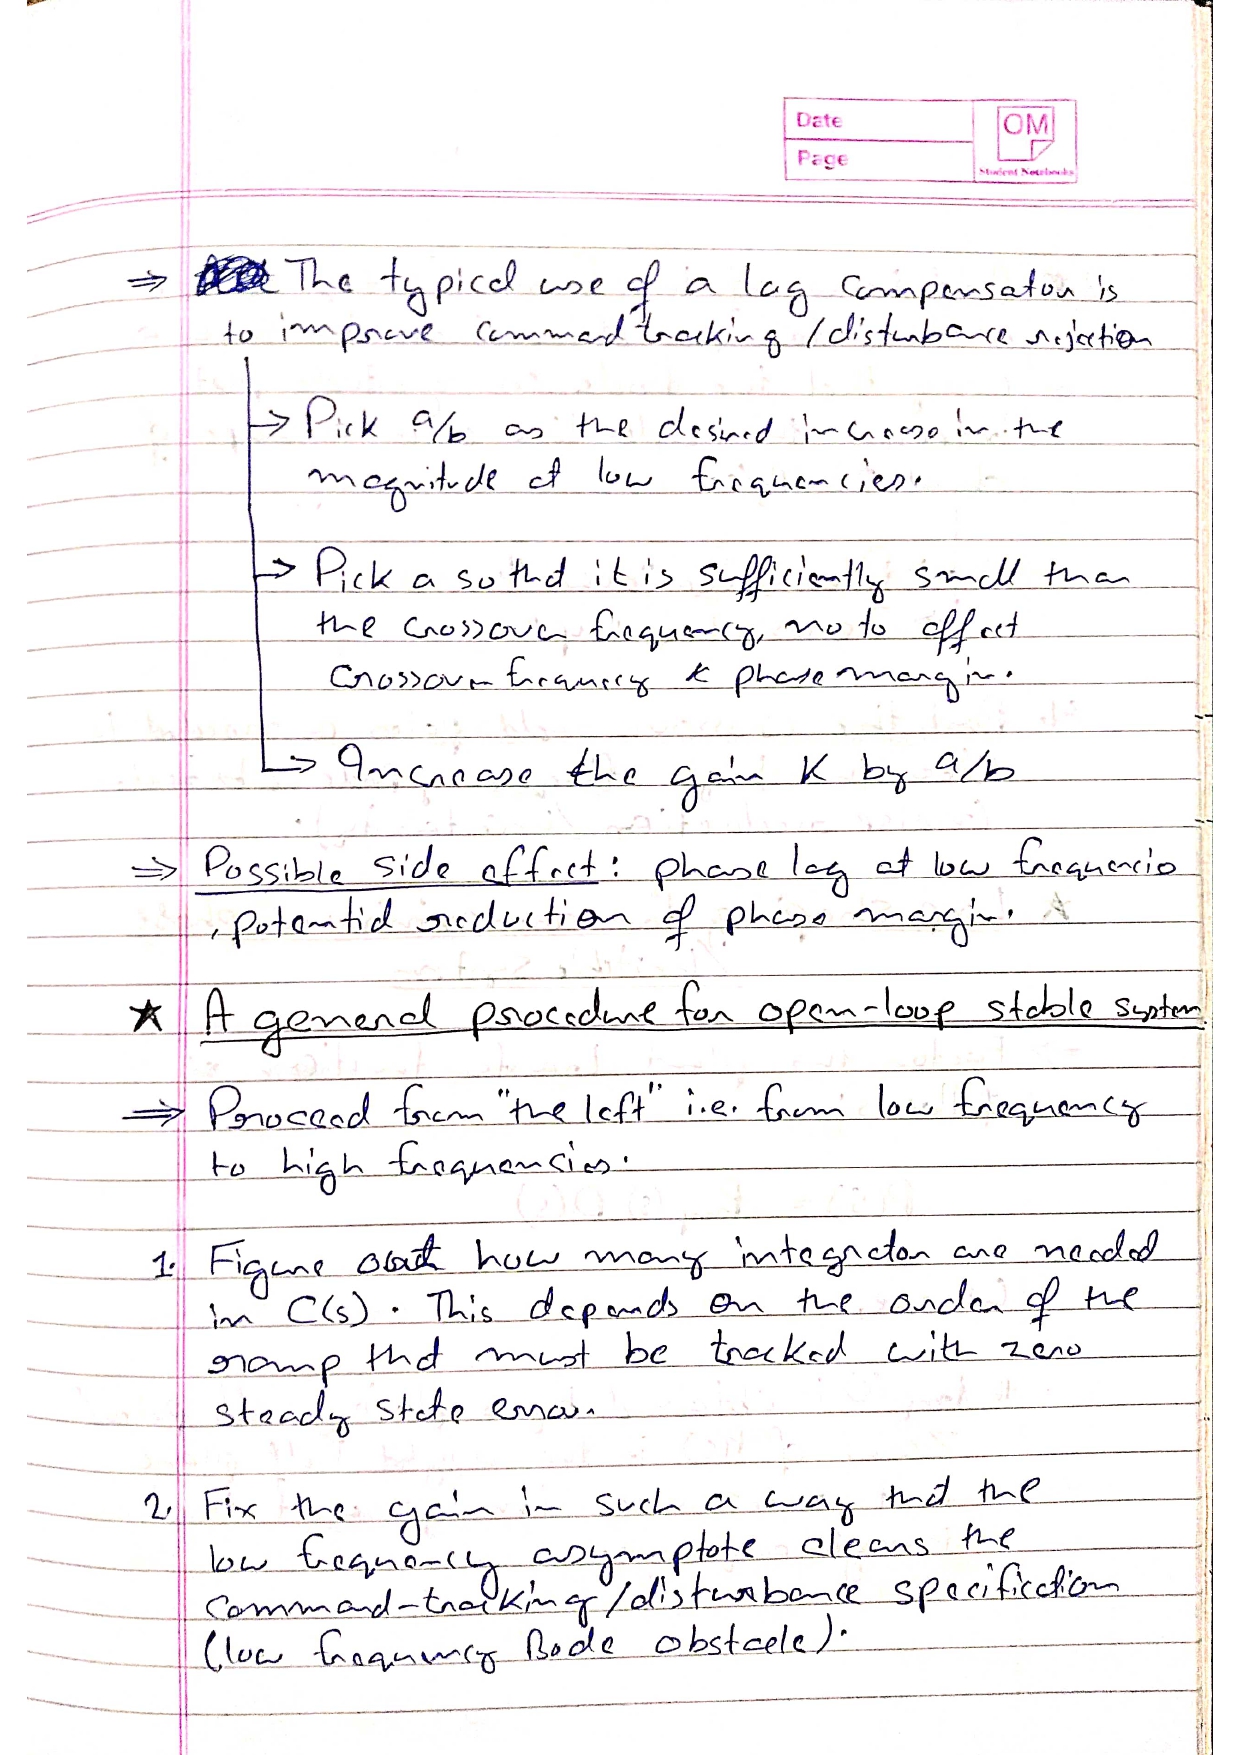 Date
Page
OM
Student Notebooks
⇒ The typical use of a lag compensator is
to improve command tracking / disturbance rejection
→ Pick a/b as the desired increase in the
magnitude at low frequencies.
→ Pick a so that it is sufficiently small than
the crossover frequency, no to affect
crossover frequency & phase margin.
→ Increase the gain K by a/b
⇒ Possible side effect: phase lag at low frequencies
, potential reduction of phase margin.
★ A general procedure for open-loop stable system
⇒ Proceed from "the left" i.e. from low frequency
to high frequencies.
1. Figure out how many integrator are needed
in C(s). This depends on the order of the
ramp that must be tracked with zero
steady state error.
2. Fix the gain in such a way that the
low frequency asymptote clears the
command-tracking/disturbance specification
(low frequency Bode obstacle).